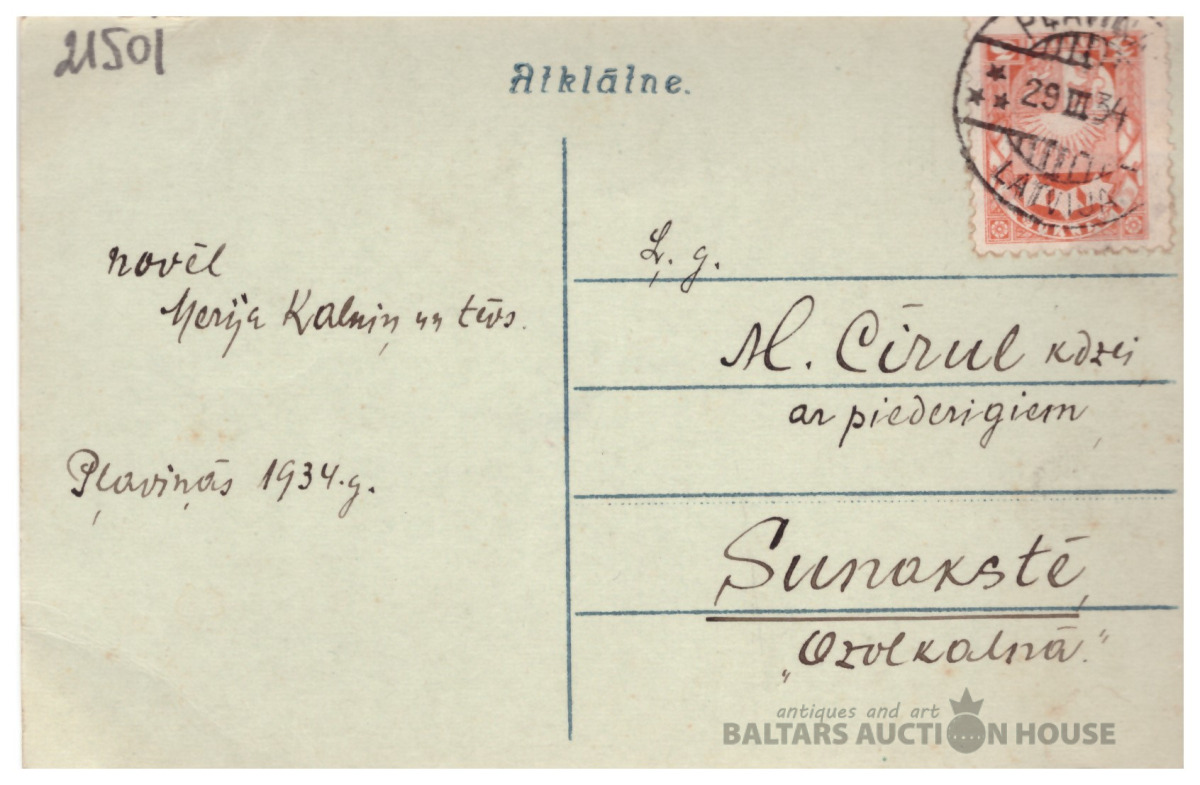 21501
Atklātne.
PĻAVIŅ
29 III 34
LATVIJA
novēl
Merija Kalniņ un tēvs.
Pļaviņās 1934.g.
Ļ. g.
M. Cīrul kdzei
ar piederigiem,
Sunakstē,
„Ozolkalnā."
antiques and art
BALTARS AUCTION HOUSE